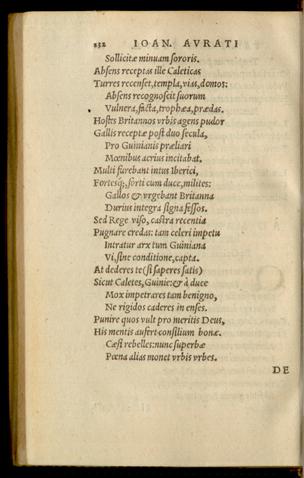 232 IOAN. AVRATI
Sollicitæ minuam sororis.
Absens receptas ille Caleticas
Turres recenset, templa, vias, domos:
Absens recognoscit suorum
Vulnera, facta, trophæa, prædas.
Hostes Britannos vrbis agens pudor
Gallis receptæ post duo secula,
Pro Guinianis præliari
Mœnibus acrius incitabat.
Multi furebant intus Iberici,
Fortesq; forti cum duce, milites:
Gallos & vrgebant Britanna
Durius integra signa fessos.
Sed Rege viso, castra recentia
Pugnare credas: tam celeri impetu
Intratur arx tum Guiniana
Vi, sine conditione, capta.
At dederes te (si saperes satis)
Sicut Caletes, Guinie: & à duce
Mox impetrares tam benigno,
Ne rigidos caderes in enses.
Punire quos vult pro meritis Deus,
His mentis aufert consilium bonæ.
Cæsi rebelles: nunc superbæ
Pœna alias monet vrbis vrbes.
DE